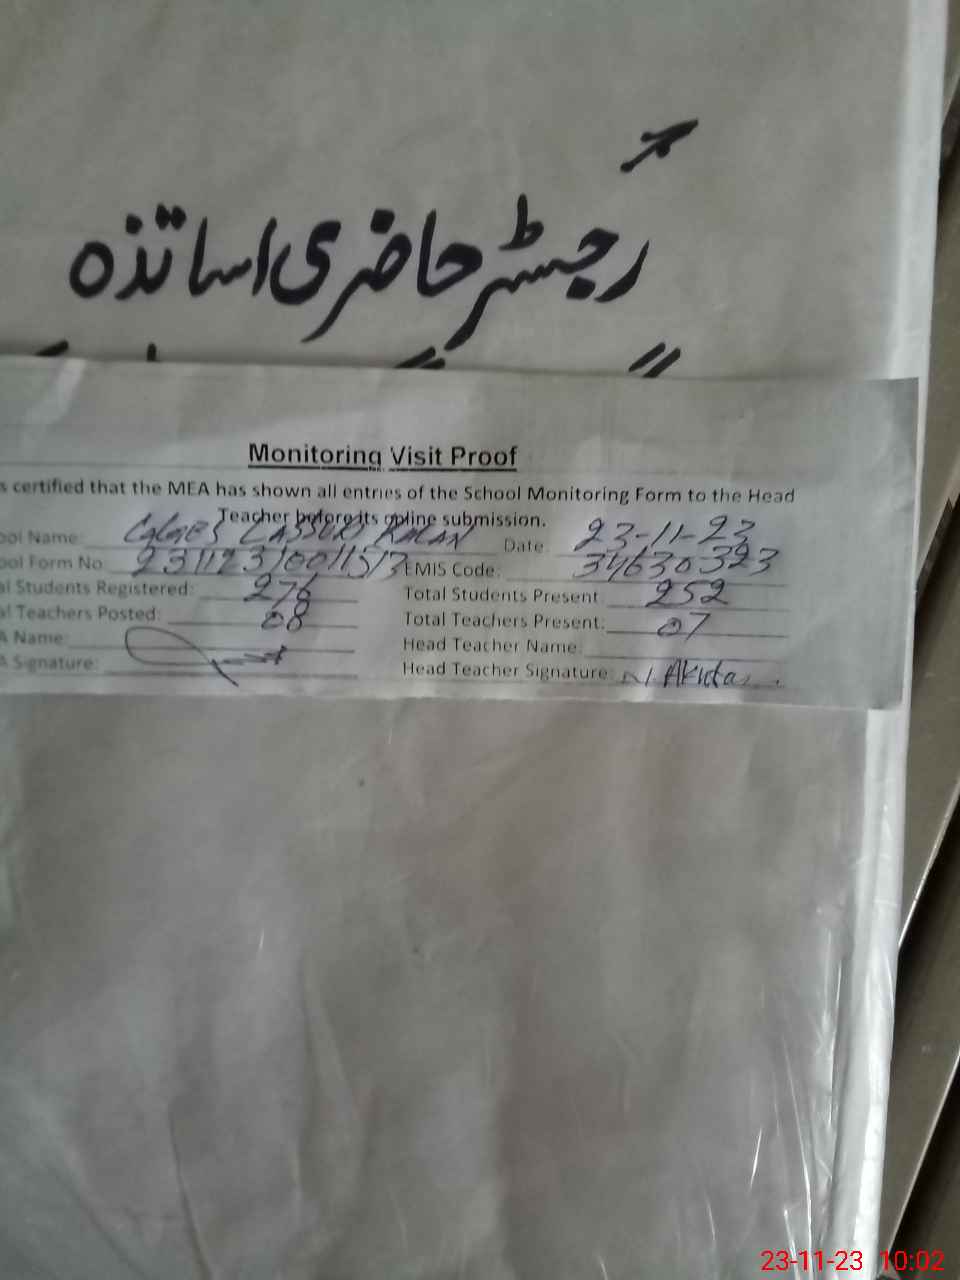 رجسٹر حاضری اساتذہ
Monitoring Visit Proof
s certified that the MEA has shown all entries of the School Monitoring Form to the Head
Teacher before its online submission.
ool Name: KALAN Date 23-11-23
ool Form No EMIS Code: 34630323
al Students Registered: 276 Total Students Present 252
al Teachers Posted: 08 Total Teachers Present: 07
A Name: Head Teacher Name:
A Signature: Head Teacher Signature:
23-11-23 10:02